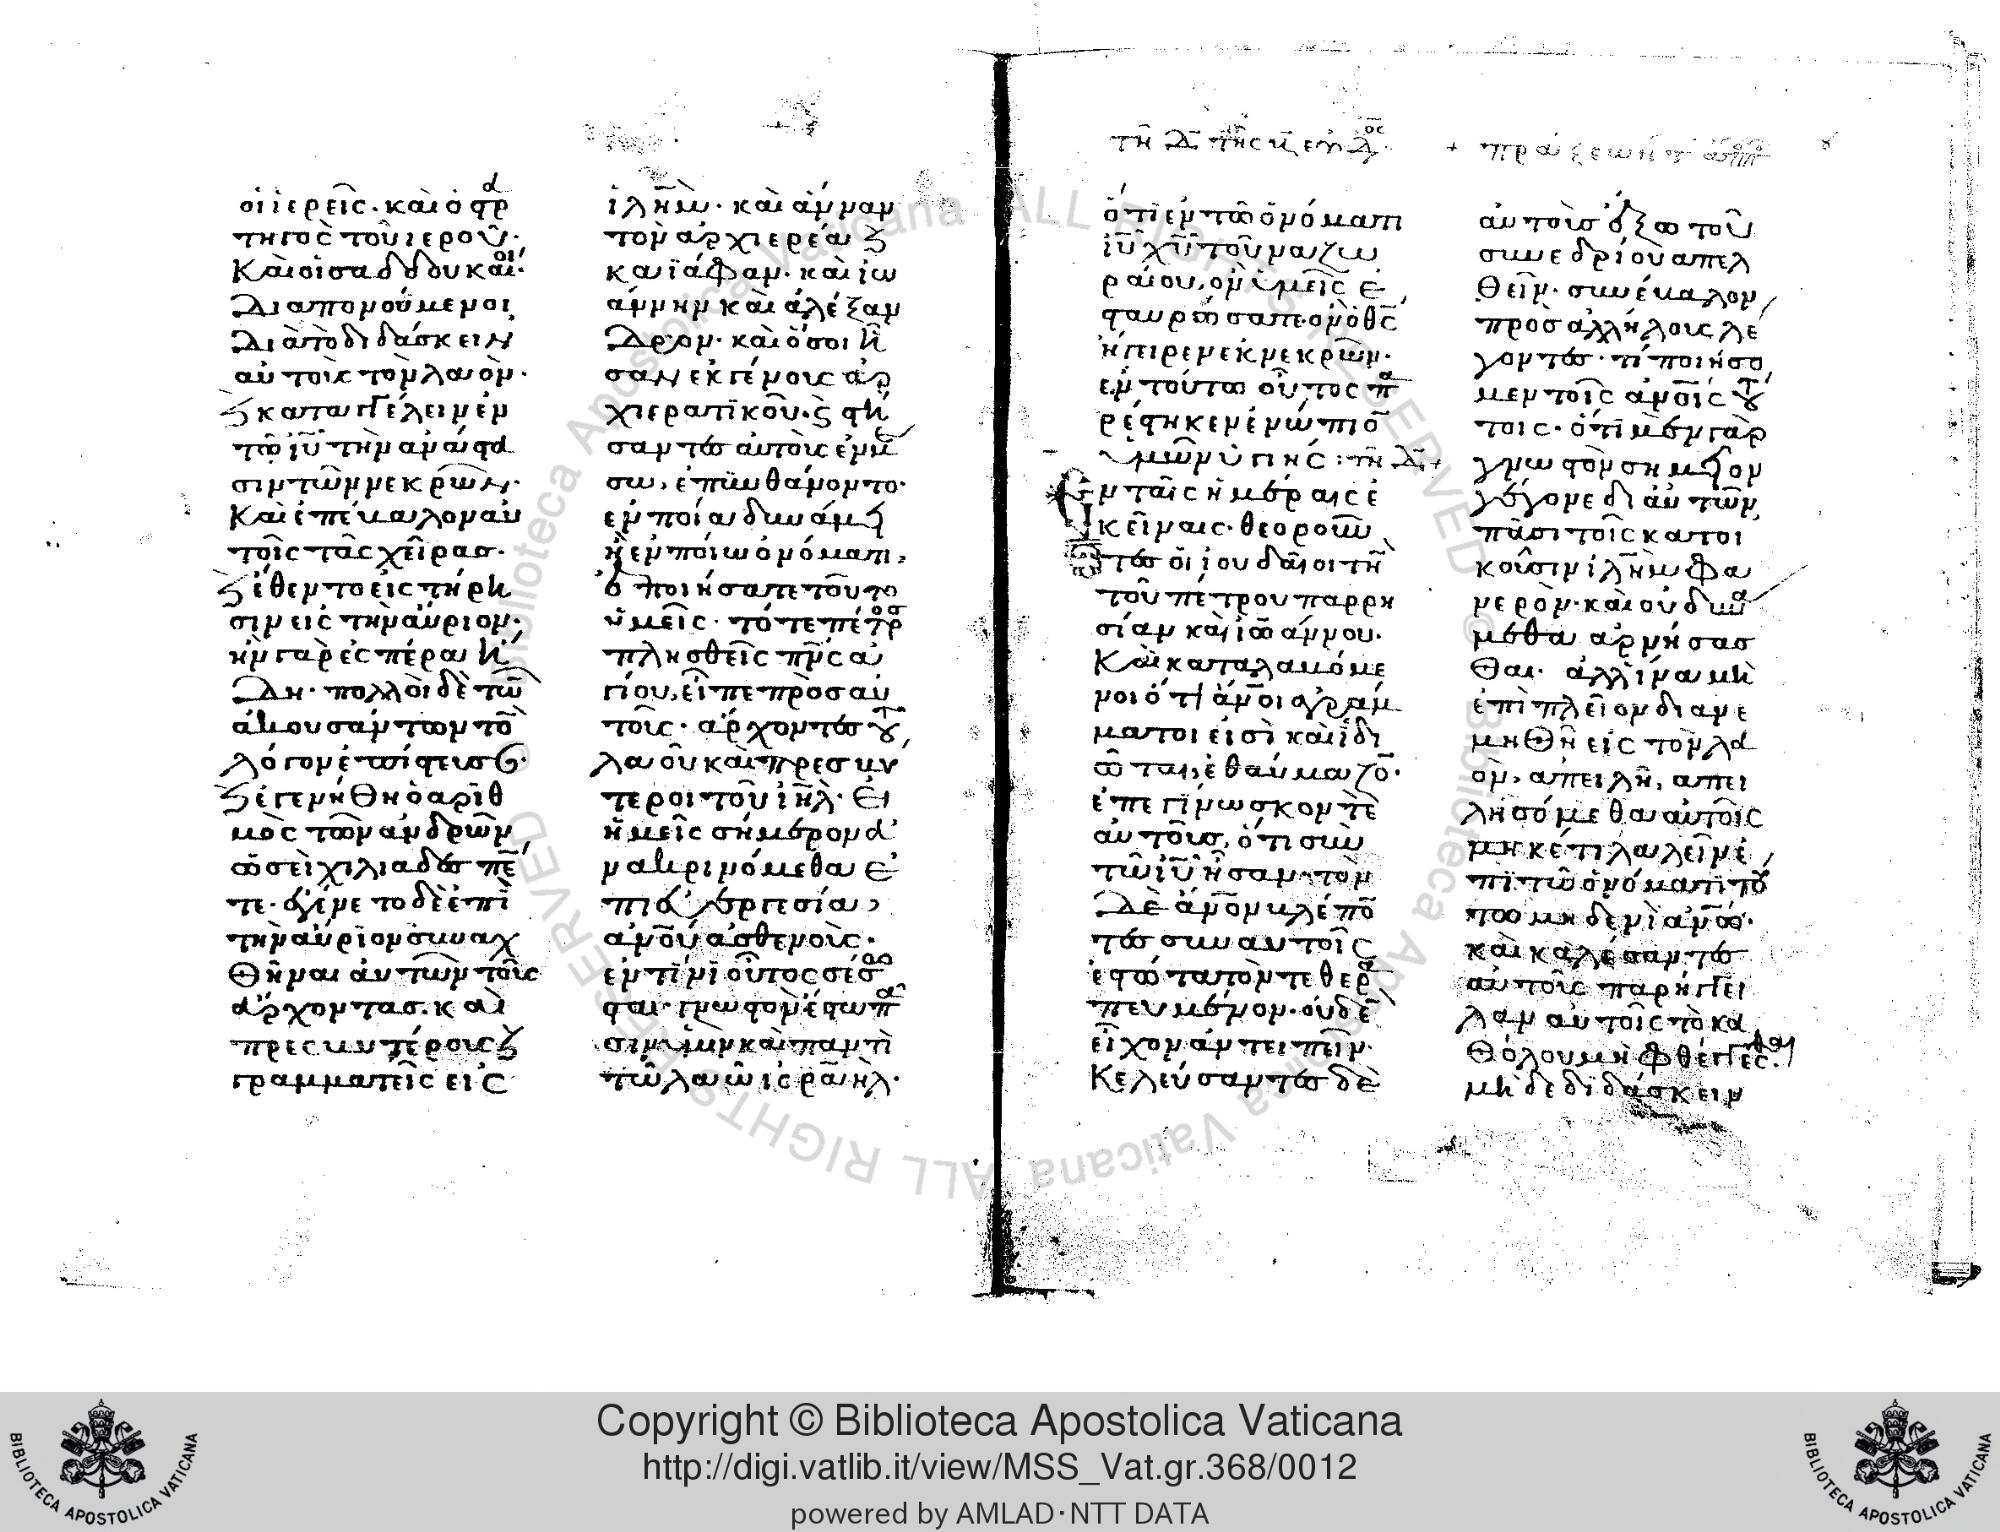 οἱ ἱερεῖς· καὶ ὁ στρα
τηγὸς τοῦ ἱεροῦ·
Καὶ οἱ σαδδουκαῖοι·
Διαπονούμενοι
Διὰ τὸ διδάσκειν
αὐτοὺς τὸν λαὸν·
ϗ καταγγέλειν ἐν
τῶ ἰῦ τὴν ἀνάστα
σιν τῶν νεκρῶν·
Καὶ ἐπέβαλον αὐ
τοῖς τὰς χεῖρας·
ϗ ἔθεντο εἰς τήρη
σιν εἰς τὴν αὔριον·
ἦν γὰρ ἑσπέρα ἤ
Δη· πολλοὶ δὲ τῶν
ἀκουσάντων τὸν
λόγον ἐπίστευσαν·
ϗ ἐγενήθη ὁ ἀριθ
μὸς τῶν ἀνδρῶν
ὡσεὶ χιλιάδες πέν
τε· ἐγένετο δὲ ἐπὶ
τὴν αὔριον συναχ
θῆναι αὐτῶν τοὺς
ἄρχοντας· καὶ
πρεσβυτέρους ϗ
γραμματεῖς εἰς
ἰλῆμ· καὶ ἄνναν
τὸν ἀρχιερέα ϗ
καϊάφαν· καὶ ἰω
άννην καὶ ἀλέξαν
Δρον· καὶ ὅσοι ἦ
σαν ἐκ γένους ἀρ
χιερατικοῦ· ϗ στή
σαντες αὐτοὺς ἐν μέ
σω, ἐπυνθάνοντο·
ἐν ποία δυνάμει
ἢ ἐν ποίω ὀνόματι,
ἐποιήσατε τοῦτο
ὑμεῖς· τότε πέτρος
πλησθεὶς πνς ἁ
γίου, εἶπε πρὸς αὐ
τούς· ἄρχοντες τοῦ
λαοῦ καὶ πρεσβύ
τεροι τοῦ ἰηλ· Εἰ
ἡμεῖς σήμερον ἀ
νακρινόμεθα ἐ
πὶ εὐεργεσία,
ἀνου ἀσθενοῦς·
ἐν τίνι οὗτος σέσω
σται· γνωστὸν ἔστω πᾶ
σιν ὑμῖν καὶ παντὶ
τῶ λαῶ ἰσραὴλ·
τῆ Δ τῆς β εβδ
+ πράξεων τ αποστ
ὅτι ἐν τῶ ὀνόματι
ἰῦ χῦ τοῦ ναζω
ραίου, ὃν ὑμεῖς ἐ
σταυρώσατε· ὃν ὁ θς
ἤγειρεν ἐκ νεκρῶν·
ἐν τούτω οὗτος πα
ρέστηκεν ἐνώπιον
ὑμῶν ὑγιής: τῆ Δ +
Ἐν ταῖς ἡμέραις ἐ
κείναις· θεοροῦν
τες οἱ ἰουδαῖοι τὴν
τοῦ πέτρου παρρη
σίαν καὶ ἰωάννου·
Καὶ καταλαβόμε
νοι ὅτι ἄνοι ἀγράμ
ματοι εἰσὶ καὶ ἰδι
ῶται, ἐθαύμαζον·
ἐπεγίνωσκον τε
αὐτοὺς, ὅτι σὺν
τῶ ἰῦ ἦσαν· τὸν
Δὲ ἄνον βλέπον
τες σὺν αὐτοῖς
ἑστῶτα τὸν τεθερα
πευμένον· οὐδὲν
εἶχον ἀντειπεῖν·
Κελεύσαντες δὲ
αὐτοὺς ἔξω τοῦ
συνεδρίου ἀπελ
θεῖν· συνέβαλον
πρὸς ἀλλήλους λέ
γοντες· τί ποιήσο
μεν τοῖς ἀνοις τού
τοις· ὅτι μὲν γὰρ
γνωστὸν σημεῖον
γέγονε δι αὐτῶν,
πᾶσι τοῖς κατοι
κοῦσιν ἰλῆμ φα
νερὸν· καὶ οὐ δυνά
μεθα ἀρνήσασ
θαι· ἀλλ ἵνα μὴ
ἐπὶ πλεῖον διανε
μηθῆ εἰς τὸν λα
ὸν, ἀπειλῆ, ἀπει
λησόμεθα αὐτοῖς
μηκέτι λαλεῖν ἐ
πὶ τῶ ὀνόματι τού
τω μηδενὶ ἀνων·
καὶ καλέσαντες
αὐτοὺς παρήγγει
λαν αὐτοῖς τὸ κα
θόλου μὴ φθέγγεσθαι·
μὴ δὲ διδάσκειν
Copyright © Biblioteca Apostolica Vaticana
http://digi.vatlib.it/view/MSS_Vat.gr.368/0012
powered by AMLAD·NTT DATA
BIBLIOTECA APOSTOLICA VATICANA
BIBLIOTECA APOSTOLICA VATICANA
Biblioteca Apostolica Vaticana ALL RIGHTS RESERVED © Biblioteca Apostolica Vaticana ALL RIGHTS RESERVED ©